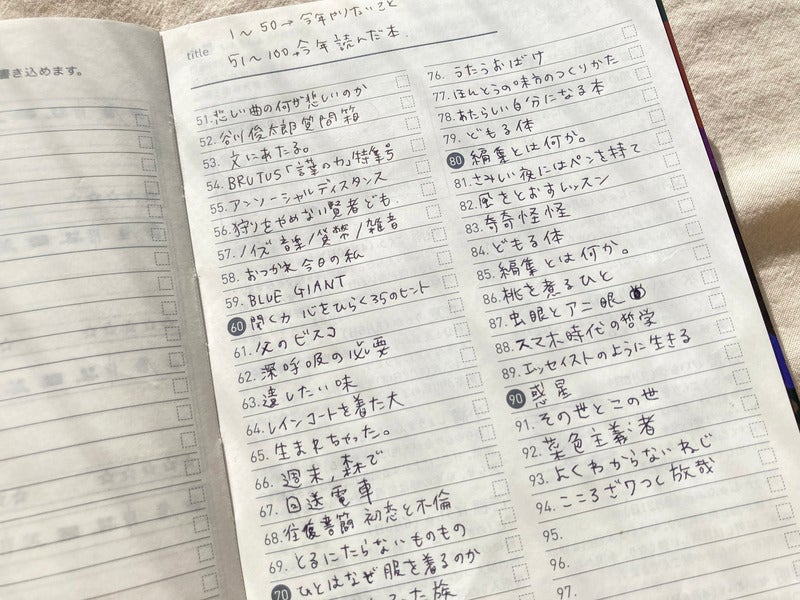 書き込めます。
title
1〜50→今年やりたいこと
51〜100→今年読んだ本.
51. 悲しい曲の何が悲しいのか
52. 谷川俊太郎質問箱
53. 文にあたる。
54. BRUTUS「言葉の力」特集号
55. アンソーシャルディスタンス
56. 狩りをやめない賢者ども
57. ノイズ 音楽/貨幣/雑音
58. おつかれ今日の私
59. BLUE GIANT
60 聞く力 心をひらく35のヒント
61. 父のビスコ
62. 深呼吸の必要
63. 遺したい味
64. レインコートを着た犬
65. 生まれちゃった。
66. 週末,森で
67. 回送電車
68. 往復書簡 初恋と不倫
69. とるにたらないものもの
70 ひとはなぜ服を着るのか
た族
76. うたうおばけ
77. ほんとうの味方のつくりかた
78. あたらしい自分になる本
79. どもる体
80 編集とは何か。
81. さみしい夜にはペンを持て
82. 風をとおすレッスン
83. 奇奇怪怪
84. どもる体
85. 編集とは何か。
86. 桃を煮るひと
87. 虫眼とアニ眼
88. スマホ時代の哲学
89. エッセイストのように生きる
90 惑星
91. その世とこの世
92. 菜色主義者
93. よくわからないねじ
94. こころザワつく放哉
95.
96.
97.